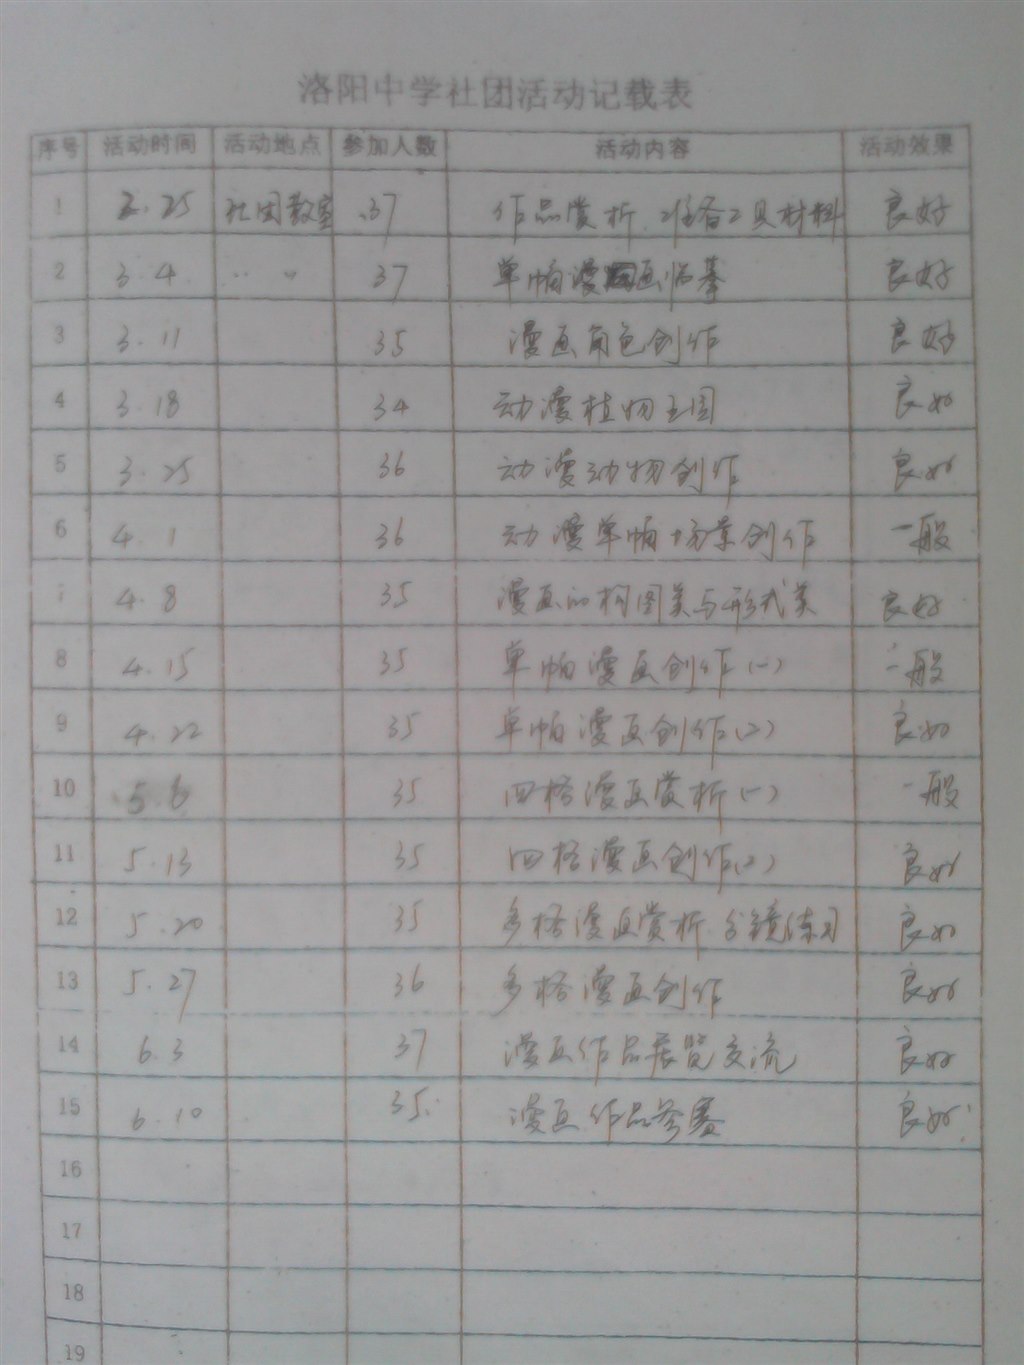 洛阳中学社团活动记载表
序号 活动时间 活动地点 参加人数 活动内容 活动效果
1 2.25 社团教室 37 作品赏析.准备工具材料 良好
2 3.4 〃 37 单帧漫画临摹 良好
3 3.11 35 漫画角色创作 良好
4 3.18 34 动漫植物王国 良好
5 3.25 36 动漫动物创作 良好
6 4.1 36 动漫单帧场景创作 一般
7 4.8 35 漫画的构图美与形式美 良好
8 4.15 35 单帧漫画创作(一) 一般
9 4.22 35 单帧漫画创作(2) 良好
10 5.6 35 四格漫画赏析(一) 一般
11 5.13 35 四格漫画创作(2) 良好
12 5.20 35 多格漫画赏析.分镜练习 良好
13 5.27 36 多格漫画创作 良好
14 6.3 37 漫画作品展览交流 良好
15 6.10 35 漫画作品参赛 良好
16
17
18
19